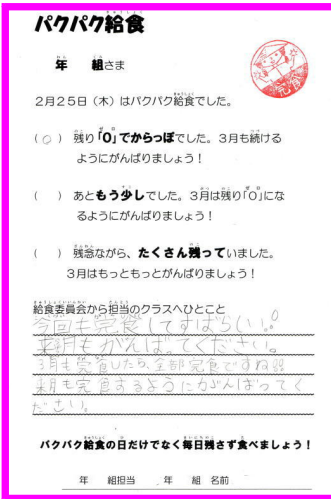 パクパク給食
年 組さま
完食
2月25日（木）はパクパク給食でした。
（○）残り「0」でからっぽでした。3月も続ける
ようにがんばりましょう！
（ ）あともう少しでした。3月は残り「0」にな
るようにがんばりましょう！
（ ）残念ながら、たくさん残っていました。
3月はもっともっとがんばりましょう！
給食委員会から担当のクラスへひとこと
今回も完食してすばらしい。
来月もがんばってください。
3月も完食したら、全部完食ですね!!
来月も完食するようにがんばってく
ださい。
パクパク給食の日だけでなく毎日残さず食べましょう！
年 組担当 年 組 名前